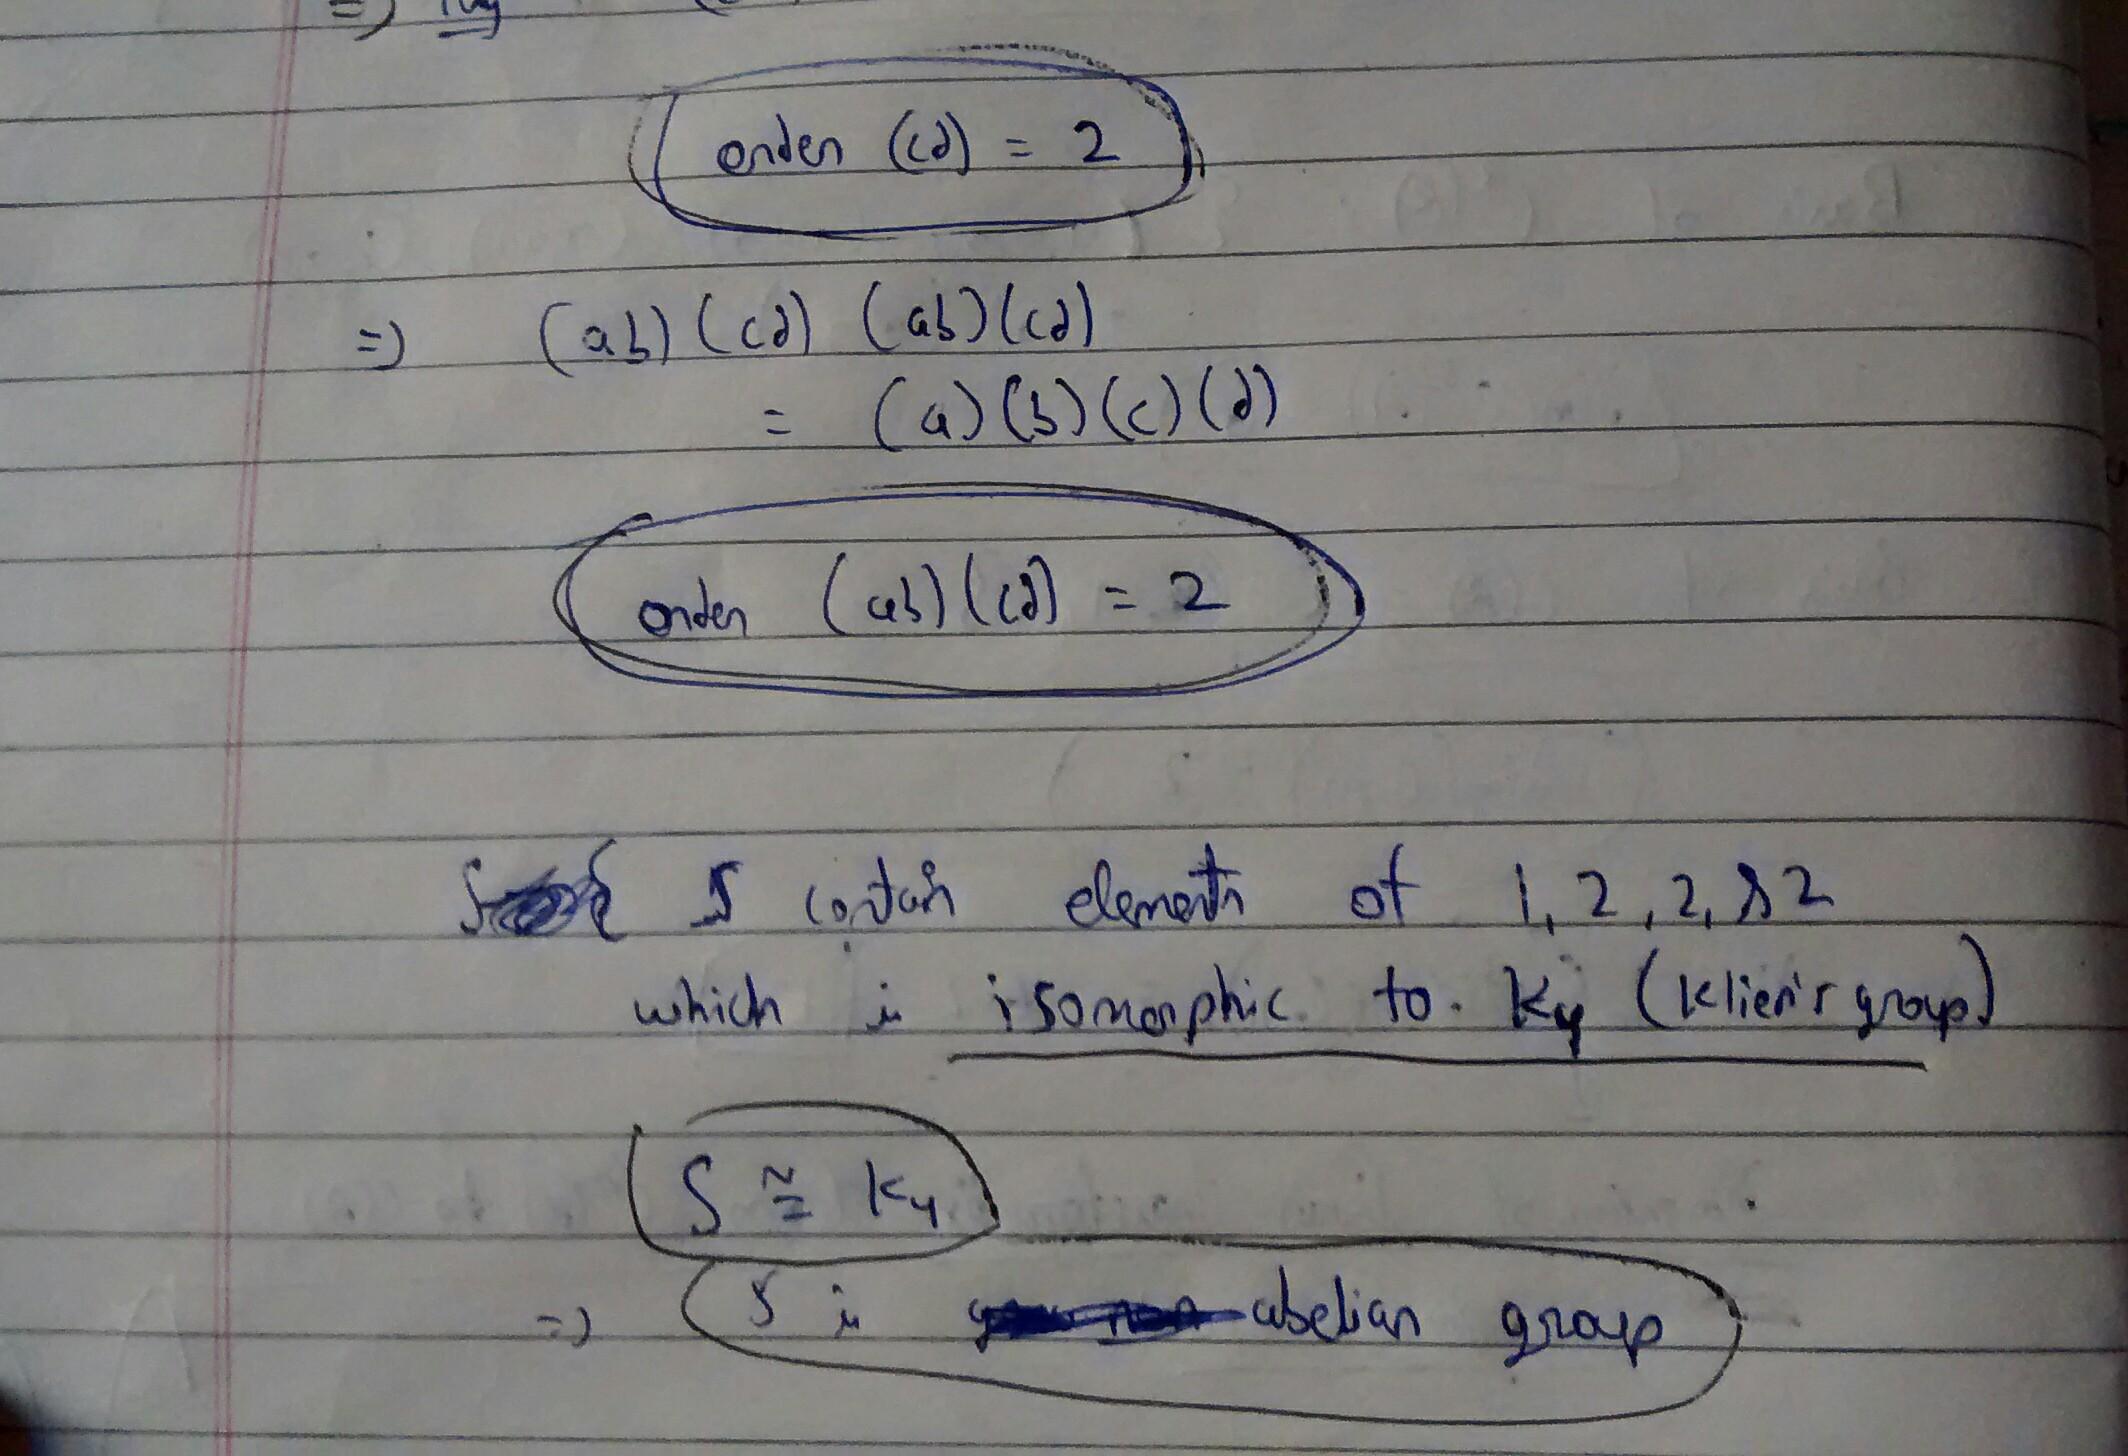 =)
order (cd) = 2
=) (ab) (cd) (ab)(cd)
= (a)(b)(c)(d)
order (ab)(cd) = 2
S contain elements of 1, 2, 2, & 2
which is isomorphic to K4 (Klien's group)
S ≅ K4
=) S is abelian group